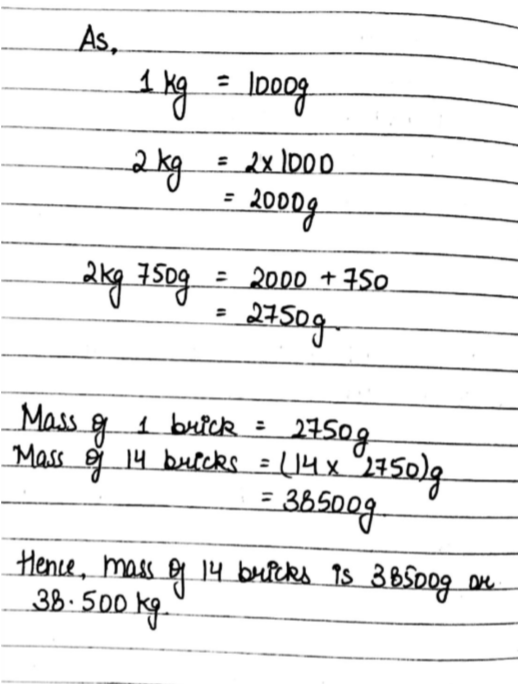 As,
1 kg = 1000g
2 kg = 2x1000
= 2000g
2kg 750g = 2000 + 750
= 2750g.
Mass of 1 brick = 2750g
Mass of 14 bricks = (14 x 2750)g
= 38500g.
Hence, mass of 14 bricks is 38500g or
38.500 kg.